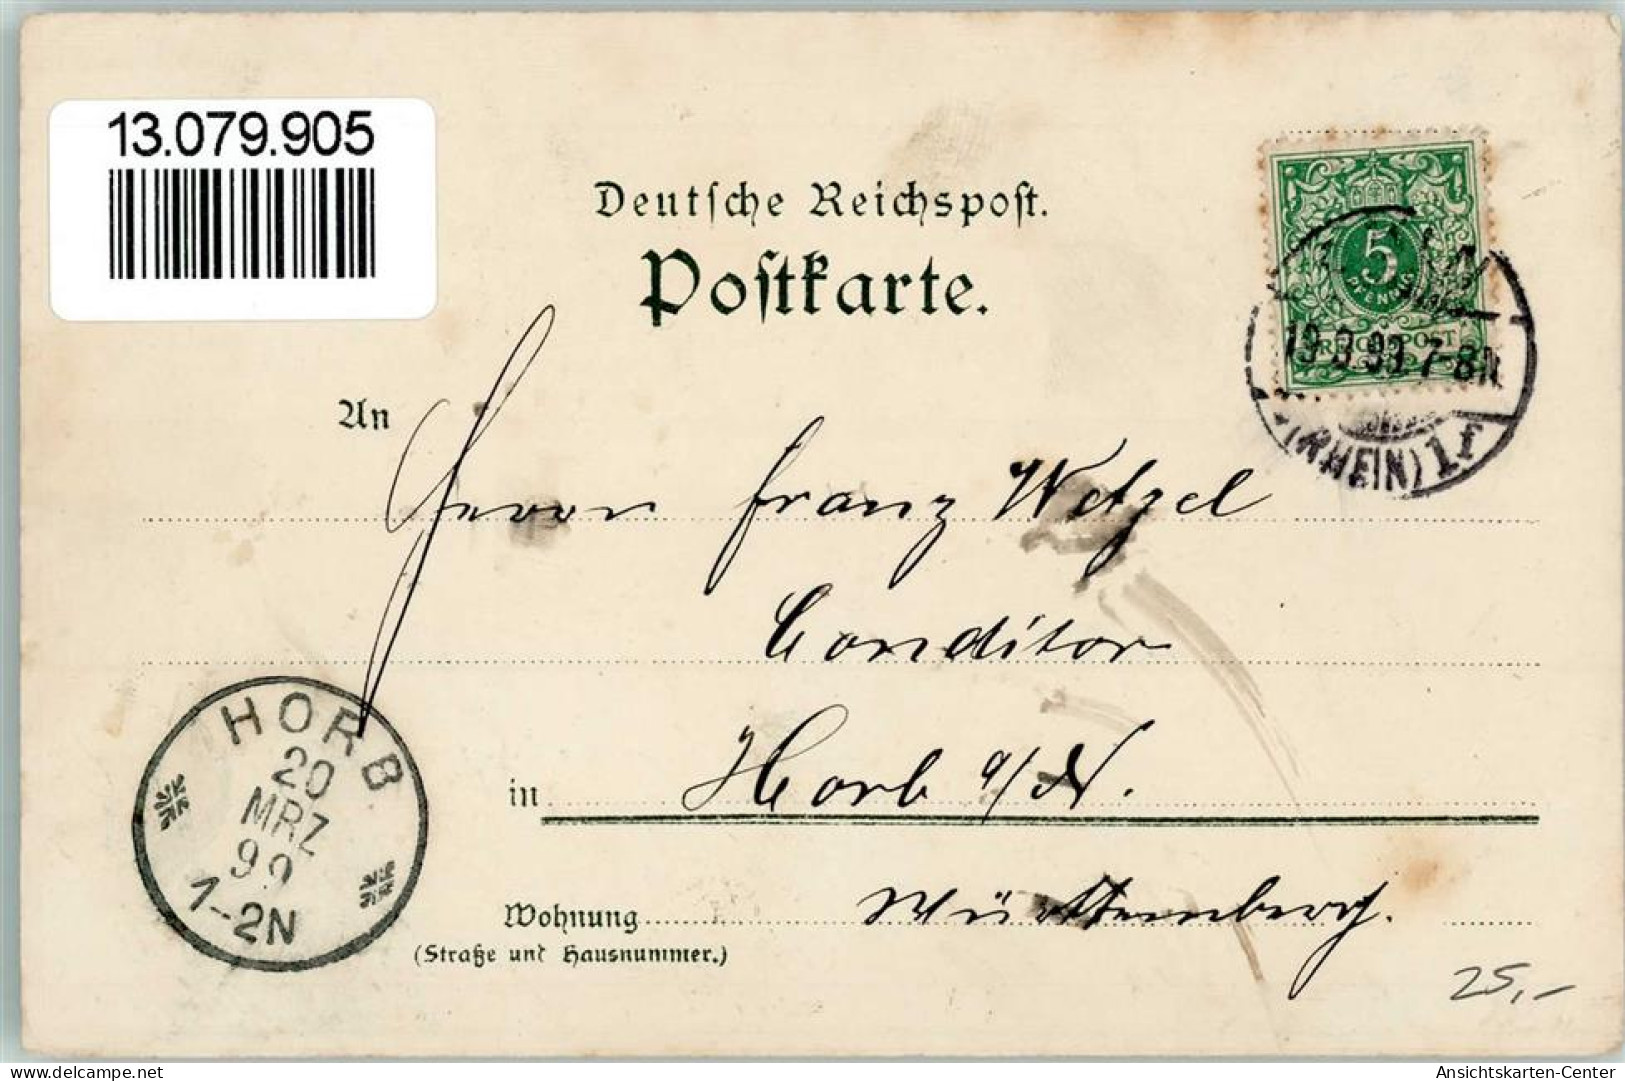 13.079.905
Deutsche Reichspost.
Postkarte.
5
PFENNIG
REICHSPOST
19.3.99.7-8N
(RHEIN) 1f
An
Herrn Franz Wetzel
Conditor
HORB
20
MRZ
99
1-2N
in Horb a/N.
Wohnung Württemberg.
(Straße und Hausnummer.)
25,-
Ansichtskarten-Center